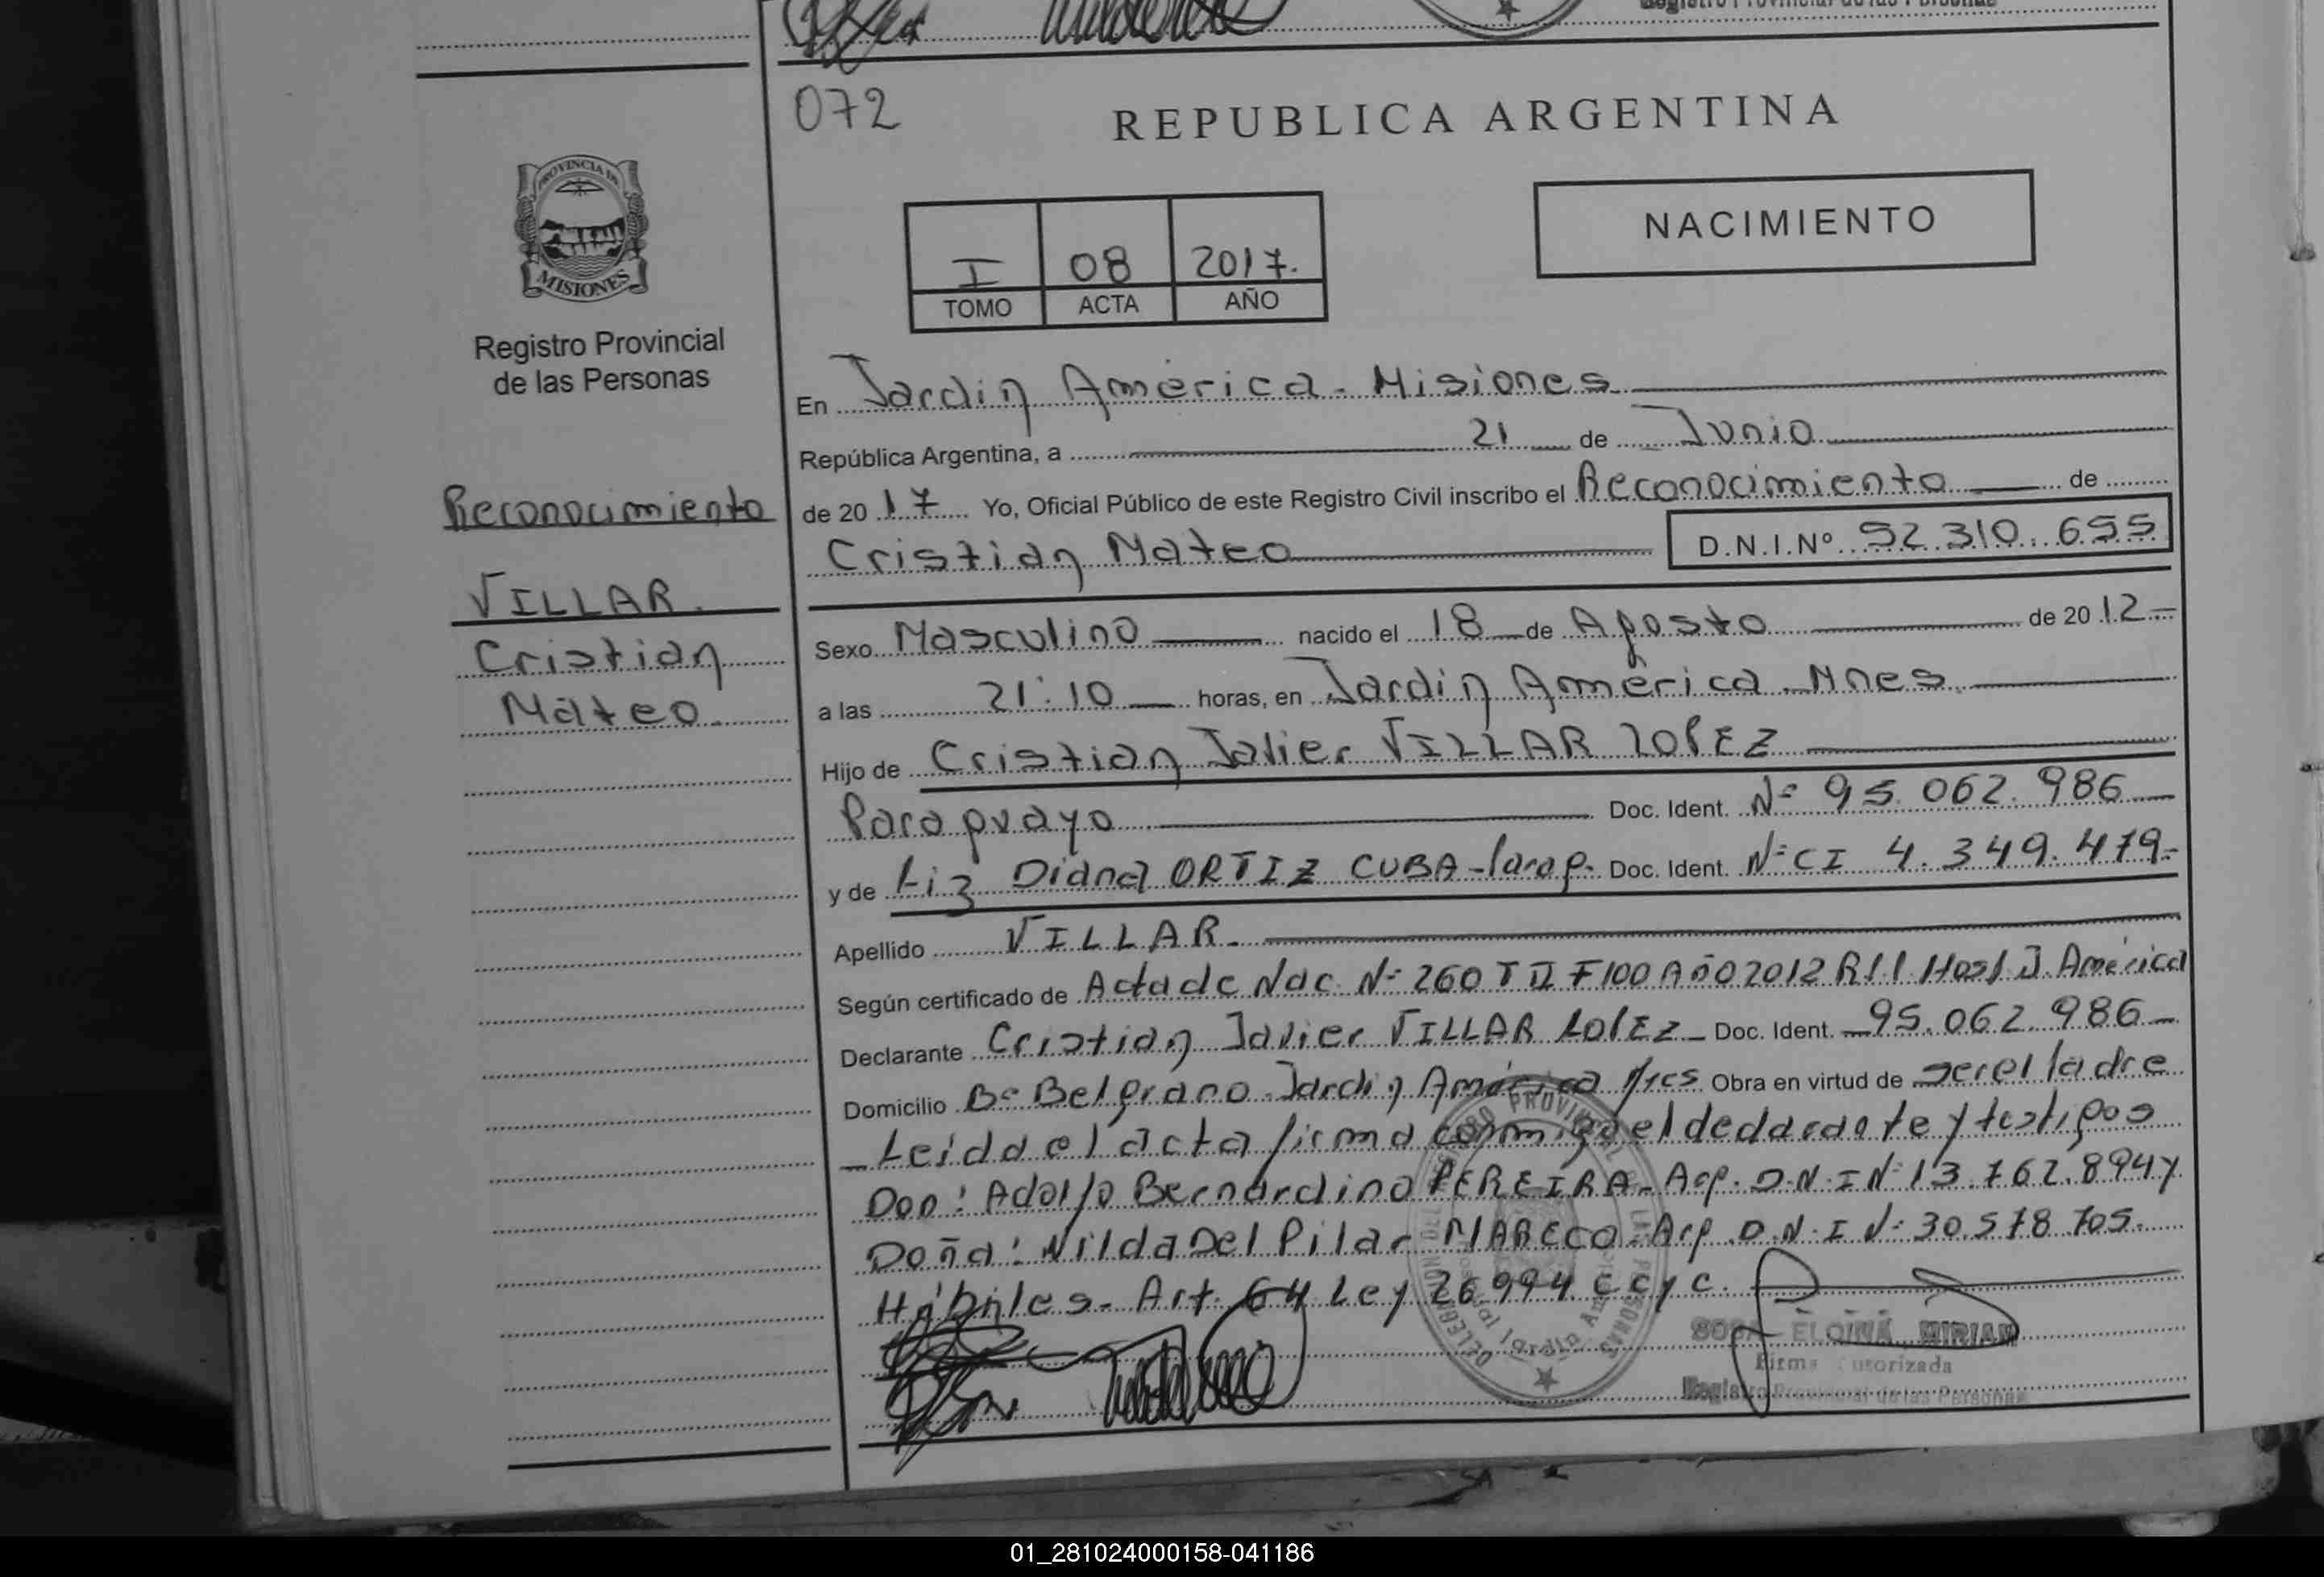 Registro Provincial de las Personas
072
REPUBLICA ARGENTINA
PROVINCIA DE
MISIONES
I 08 2017.
TOMO ACTA AÑO
NACIMIENTO
Registro Provincial
de las Personas
Reconocimiento
VILLAR.
Cristian
Mateo
En Jardin América - Misiones
República Argentina, a 21 de Junio
de 20 17 Yo, Oficial Público de este Registro Civil inscribo el Reconocimiento de
Cristian Mateo D.N.I.Nº 52.310.655
Sexo Masculino nacido el 18 de Agosto de 20 12
a las 21:10 horas, en Jardin América Mnes
Hijo de Cristian Javier VILLAR LOPEZ
Paraguayo Doc. Ident. Nº 95.062.986
y de Liz Diana ORTIZ CUBA - Parag. Doc. Ident. Nº CI 4.349.479
Apellido VILLAR
Según certificado de Acta de Nac. Nº 260 T II F 100 Año 2012 R.P.P. Hosp J. América
Declarante Cristian Javier VILLAR LOPEZ Doc. Ident. 95.062.986
Domicilio Bº Belgrano Jardin América Mnes Obra en virtud de ser el Padre
Leída el acta firma conmigo el declarante y testigos
Don: Adolfo Bernardino PEREIRA - Arg. D.N.I Nº 13.762.894 y
Doña: Nilda Del Pilar MARECO - Arg D.N.I Nº 30.578.705.
Hábiles - Art. 64 Ley 26994 CCyC.
SOSA ELOINA MIRIAM
Firma Autorizada
Registro Provincial de las Personas
01_281024000158-041186